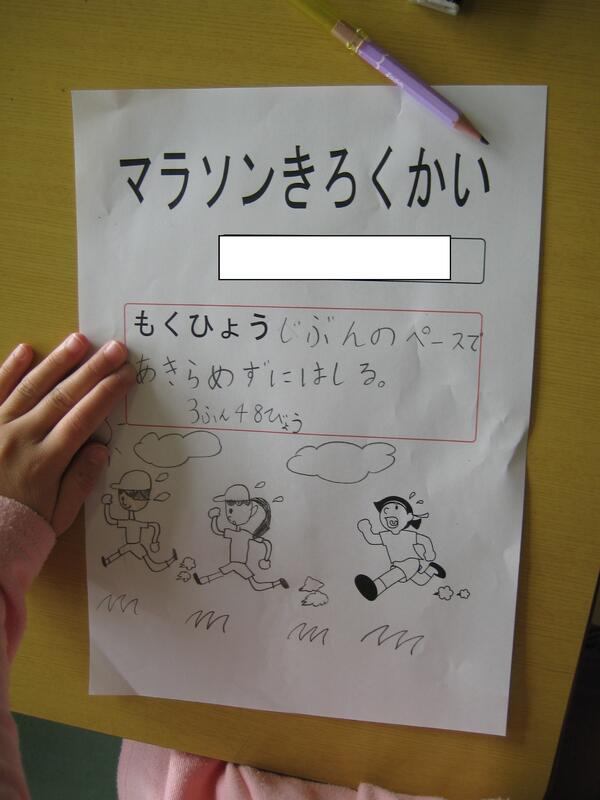 マラソンきろくかい
もくひょう じぶんのペースで
あきらめずにはしる。
3ぷん48びょう